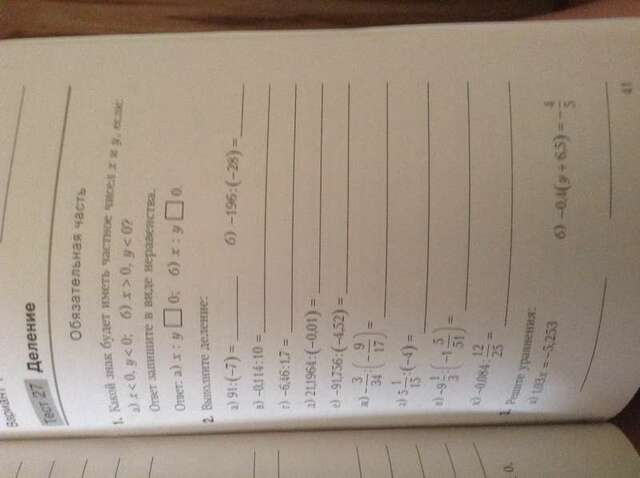 Вариант
Тест 27 Деление
Обязательная часть
1. Какой знак будет иметь частное чисел x и y, если:
а) x < 0, y < 0; б) x > 0, y < 0?
Ответ запишите в виде неравенства.
Ответ: а) x : y □ 0; б) x : y □ 0.
2. Выполните деление:
а) 91 : (−7) = б) −196 : (−28) =
в) −0,114 : 10 =
г) −6,46 : 1,7 =
д) 21,1964 : (−0,01) =
е) −91,756 : (−4,52) =
ж) 3/34 : (−9/17) =
з) 5 1/15 : (−4) =
и) −9 1/3 : (−1 5/51) =
к) −0,084 : 12/25 =
3. Решите уравнения:
а) 1,03x = −5,253 б) −0,4(y + 6,5) = −4/5
41
0.